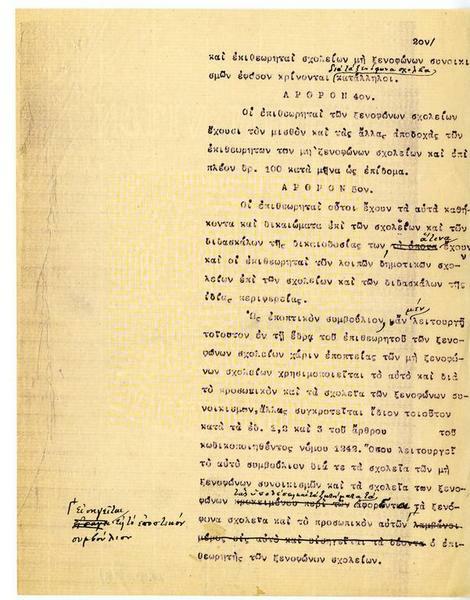 2ον/
καὶ ἐπιθεωρηταὶ σχολείων μὴ ξενοφώνων συνοικι
διὰ τὰ ξενόφωνα σχολεῖα
σμῶν ἐφ'ὅσον κρίνονται (κατάλληλοι.
ΑΡΘΡΟΝ 4ον.
Οἱ ἐπιθεωρηταὶ τῶν ξενοφώνων σχολείων
ἔχουσι τὸν μισθὸν καὶ τὰς ἄλλας ἀποδοχὰς τῶν
ἐπιθεωρητῶν τῶν μὴ ξενοφώνων σχολείων καὶ ἐπὶ
πλέον δρ. 100 κατὰ μῆνα ὡς ἐπίδομα.
ΑΡΘΡΟΝ 5ον.
Οἱ ἐπιθεωρηταὶ οὗτοι ἔχουν τὰ αὐτὰ καθή-
κοντα καὶ δικαιώματα ἐπὶ τῶν σχολείων καὶ τῶν
ἅτινα
διδασκάλων τῆς δικαιοδοσίας των τὰ ὁποῖα ἔχουν
καὶ οἱ ἐπιθεωρηταὶ τῶν λοιπῶν δημοτικῶν σχο-
λείων ἐπὶ τῶν σχολείων καὶ τῶν διδασκάλων τῆς
ἰδίας περιφερείας.
μὲν
Ὡς ἐποπτικὸν συμβούλιον, ἂν λειτουργῇ
τοιοῦτον ἐν τῇ ἕδρᾳ τοῦ ἐπιθεωρητοῦ τῶν ξενο-
φώνων σχολείων χάριν ἐποπτείας τῶν μὴ ξενοφώ-
νων σχολείων χρησιμοποιεῖται τὸ αὐτὸ καὶ διὰ
τὸ προσωπικὸν καὶ τὰ σχολεῖα τῶν ξενοφώνων συ-
νοικισμῶν, ἄλλως συγκροτεῖται ἴδιον τοιοῦτον
κατὰ τὰ ἐδ. 1,2 καὶ 3 τοῦ ἄρθρου τοῦ
κωδικοποιηθέντος νόμου 1242. Ὅπου λειτουργεῖ
τὸ αὐτὸ συμβούλιον διά τε τὰ σχολεῖα τῶν μὴ
ξενοφώνων συνοικισμῶν καὶ τὰ σχολεῖα τῶν ξενο-
φώνων προκειμένου περὶ τῶν ἀφορώντων τὰ ξενό-
φωνα σχολεῖα καὶ τὸ προσωπικὸν αὐτῶν λαμβάνει
μέρος εἰς αὐτὸ καὶ εἰσηγεῖται τὰ δέοντα ὁ ἐπι-
θεωρητὴς τῶν ξενοφώνων σχολείων.
εἰσηγεῖται
εἰς τὸ ἐποπτικὸν
συμβούλιον